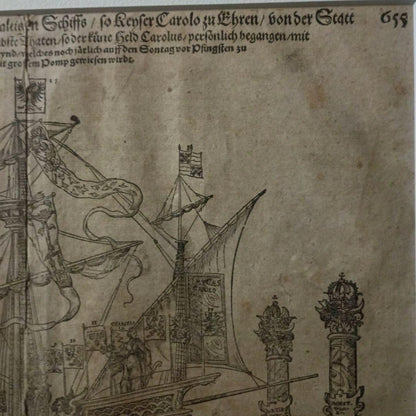 altigen Schiffs / so Keyser Carolo zu Ehren / von der Statt 655
bste Thaten / so der küne Held Carolus / persönlich begangen / mit
vnd / welches noch järlich auff den Sontag vor Pfingsten zu
it grossem Pomp gewiesen wirdt.